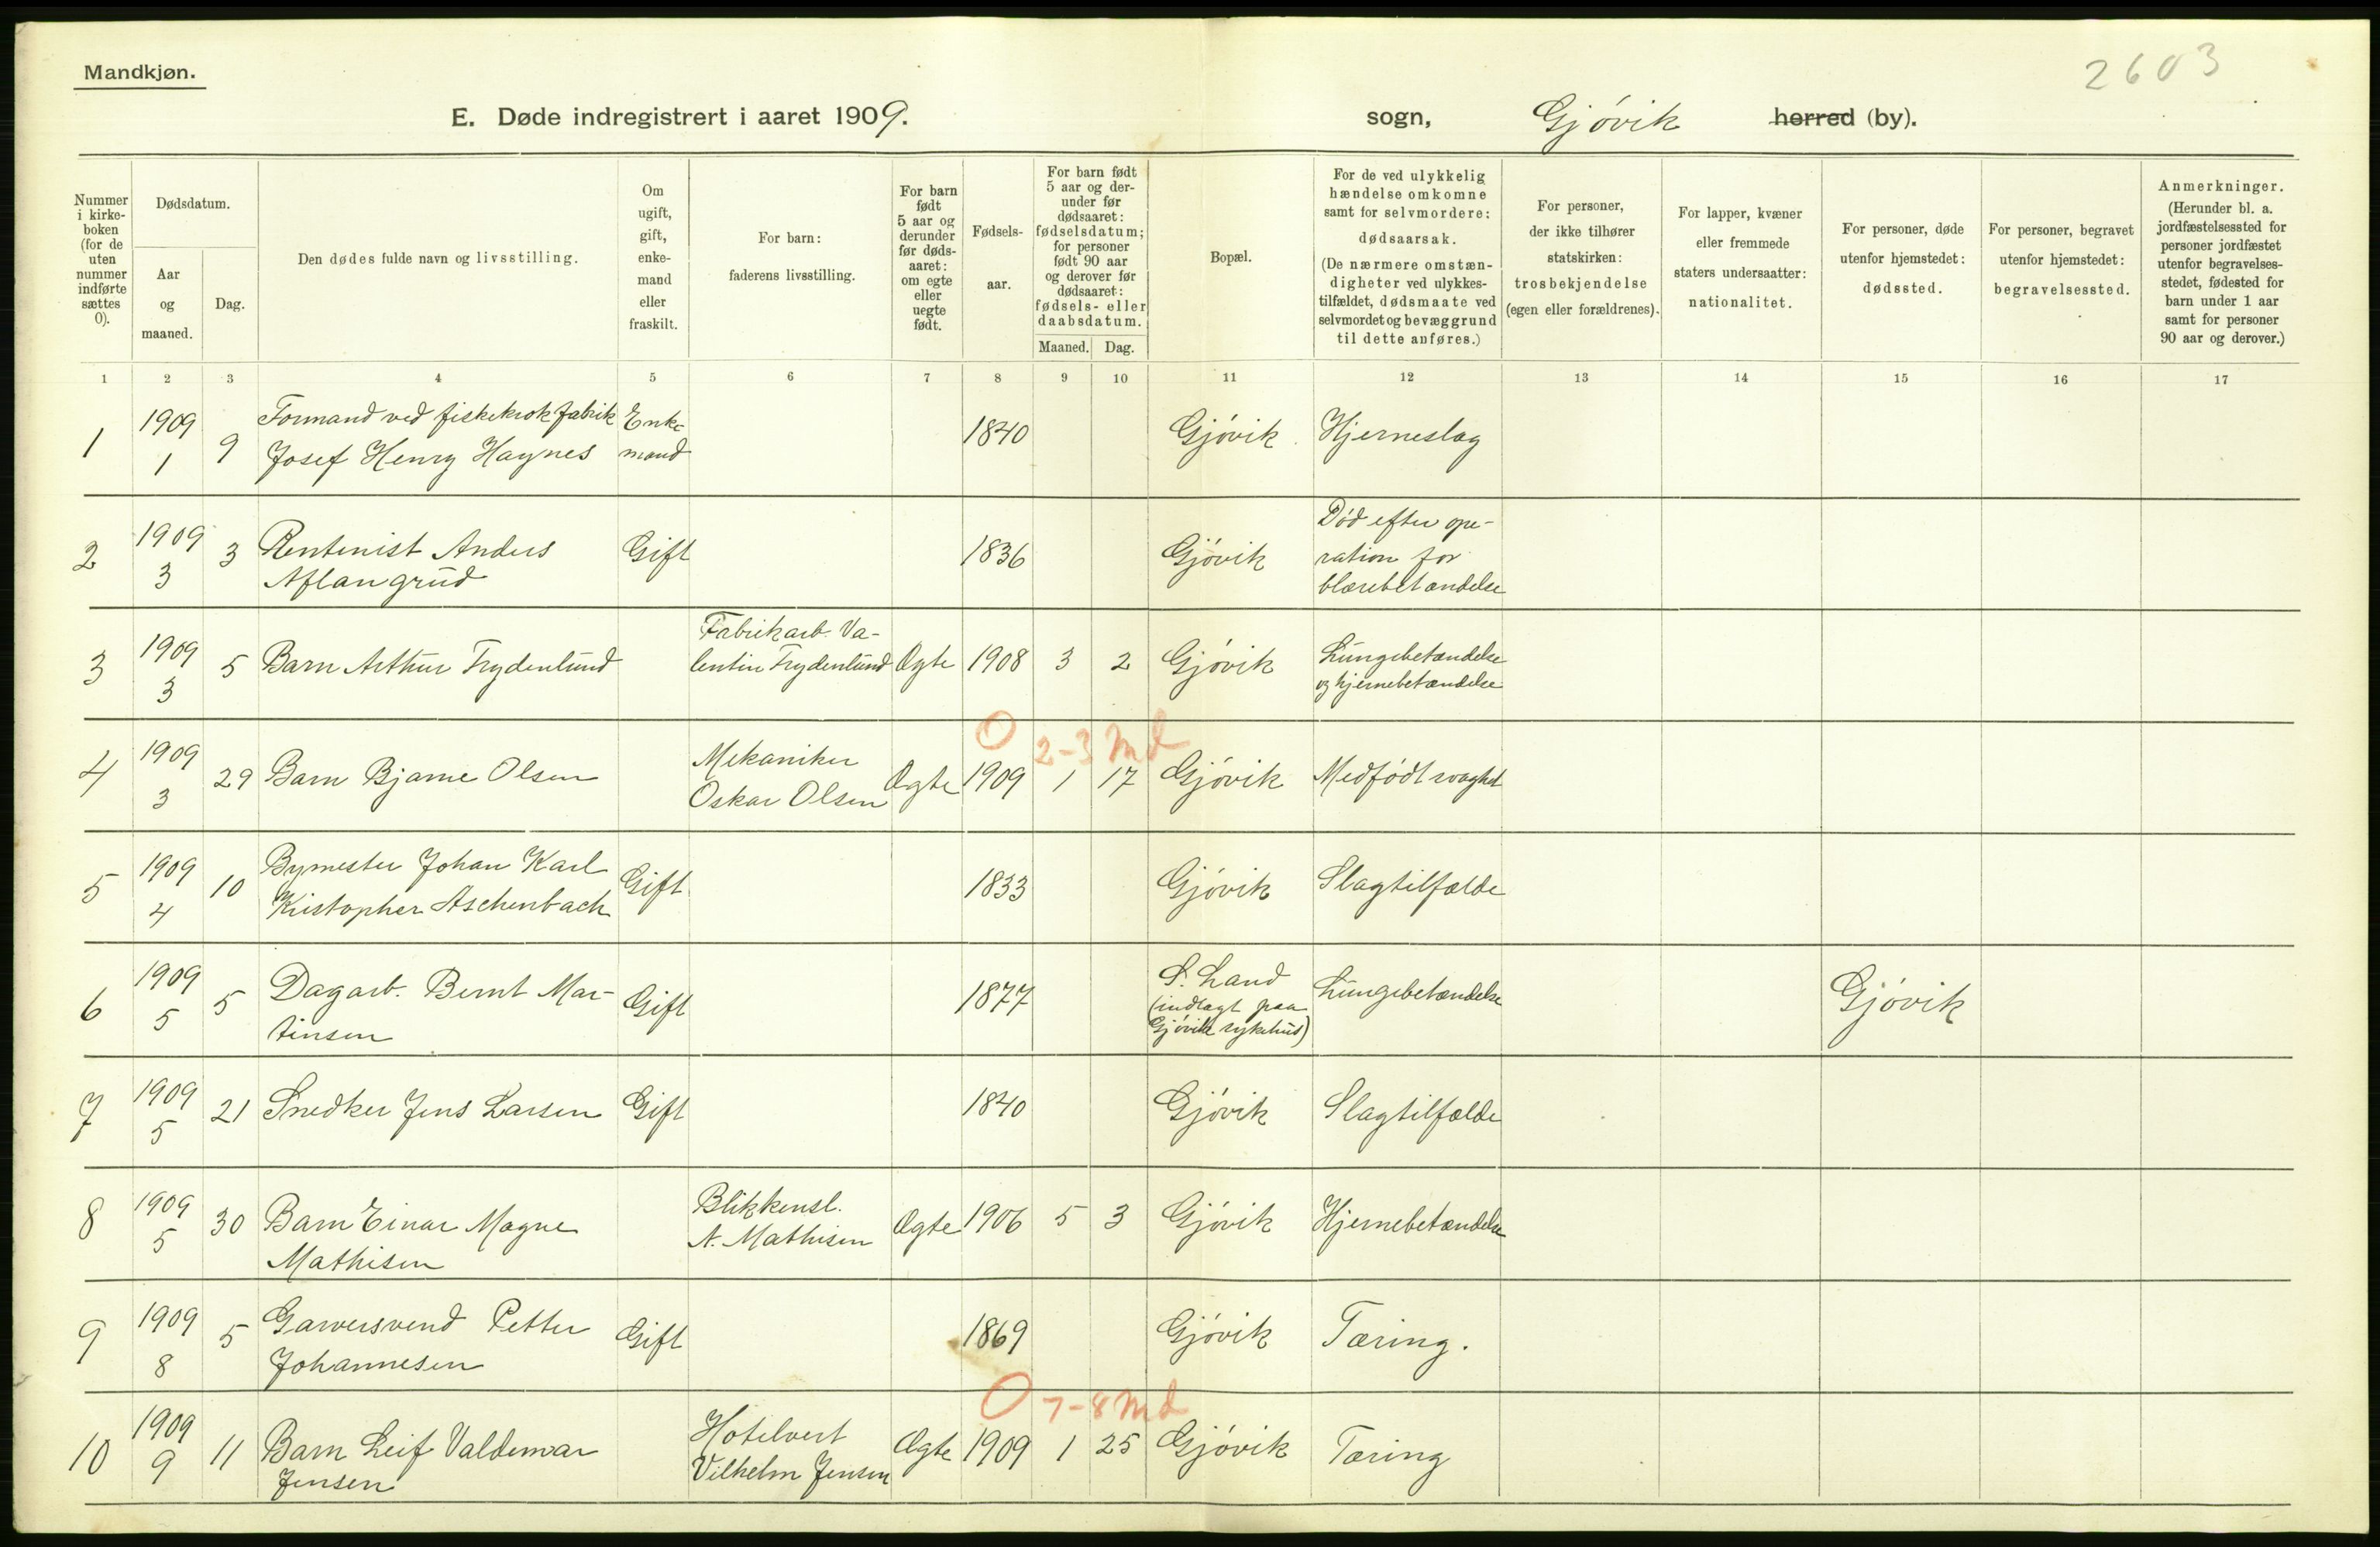 Mandkjøn.
2603
E. Døde indregistrert i aaret 1909. sogn, Gjøvik herred (by).
Nummer i kirke-boken (for de uten nummer indførte sættes 0).
Dødsdatum.
Aar og maaned.
Dag.
Den dødes fulde navn og livsstilling.
Om ugift, gift, enke-mand eller fraskilt.
For barn: faderens livsstilling.
For barn født 5 aar og derunder før døds-aaret: om egte eller uegte født.
Fødsels-aar.
For barn født 5 aar og der-under før dødsaaret: fødselsdatum; for personer født 90 aar og derover før dødsaaret: fødsels- eller daabsdatum.
Maaned. Dag.
Bopæl.
For de ved ulykkelig hændelse omkomne samt for selvmordere: dødsaarsak. (De nærmere omstæn-digheter ved ulykkes-tilfældet, dødsmaate ved selvmordet og bevæggrund til dette anføres.)
For personer, der ikke tilhører statskirken: trosbekjendelse (egen eller forældrenes).
For lapper, kvæner eller fremmede staters undersaatter: nationalitet.
For personer, døde utenfor hjemstedet: dødssted.
For personer, begravet utenfor hjemstedet: begravelsessted.
Anmerkninger. (Herunder bl. a. jordfæstelsessted for personer jordfæstet utenfor begravelses-stedet, fødested for barn under 1 aar samt for personer 90 aar og derover.)
1 2 3 4 5 6 7 8 9 10 11 12 13 14 15 16 17
1 1909 1 9 Formand ved fiskekrokfabrik Josef Henry Haynes Enkemand 1840 Gjøvik. Hjerneslag
2 1909 3 3 Rentenist Anders Aflangrud Gift 1836 Gjøvik Død efter ope-ration for blærebetændelse
3 1909 3 5 Barn Arthur Frydenlund Fabrikarb. Va-lentin Frydenlund Ægte 1908 3 2 Gjøvik Lungebetændelse og hjernebetændelse
O 2-3 Md
4 1909 3 29 Barn Bjarne Olsen Mekaniker Oskar Olsen Ægte 1909 1 17 Gjøvik Medfødt svaghet
5 1909 4 10 Bymester Johan Karl Kristopher Aschenbach Gift 1833 Gjøvik Slagtilfælde
6 1909 5 5 Dagarb. Bernt Mar-tinsen Gift 1877 S. Land (indlagt paa Gjøvik sykehus) Lungebetændelse Gjøvik
7 1909 5 21 Snedker Jens Larsen Gift 1840 Gjøvik Slagtilfælde
8 1909 5 30 Barn Einar Magne Mathisen Blikkensl. A. Mathisen Ægte 1906 5 3 Gjøvik Hjernebetændelse
9 1909 8 5 Garversvend Petter Johannesen Gift 1869 Gjøvik Tæring.
O 7-8 Md
10 1909 9 11 Barn Leif Valdemar Jensen Hotelvert Vilhelm Jensen Ægte 1909 1 25 Gjøvik Tæring